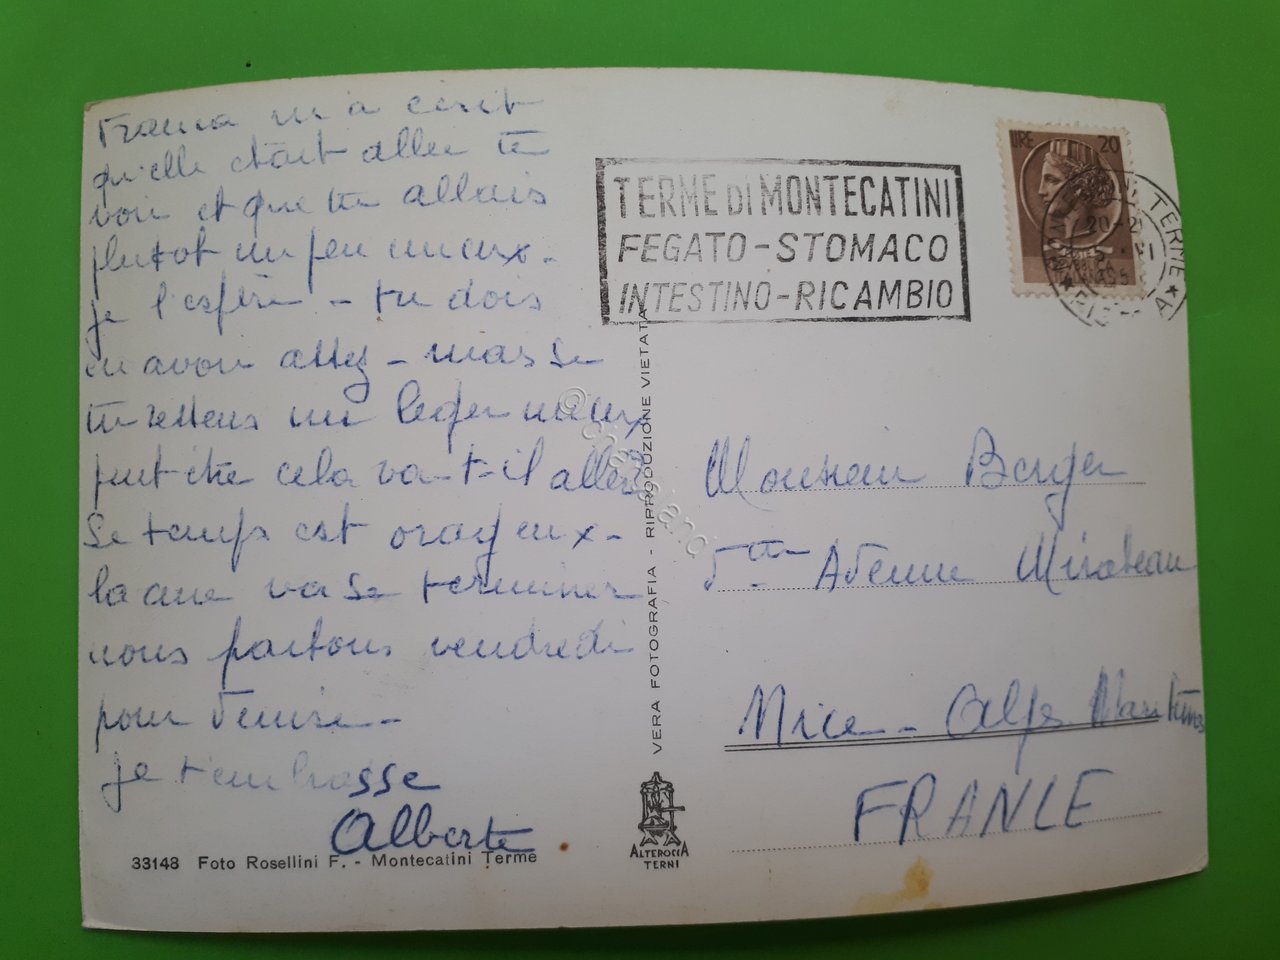 Franca m'a écrit
qu'elle était allée te
voir et que tu allais
plutot un peu mieux.
je l'espère - tu dois
en avoir assez - mais si
tu ressens un leger mieux
peut être cela va-t-il aller
Le temps est orageux -
la cure va se terminer
nous partons vendredi
pour Venise -
je t'embrasse
Alberte
33148 Foto Rosellini F. - Montecatini Terme
TERME DI MONTECATINI
FEGATO - STOMACO
INTESTINO - RICAMBIO
LIRE 20
20-21
TERME
VERA FOTOGRAFIA - RIPRODUZIONE VIETATA
ALTEROCCA
TERNI
Monsieur Berger
5 Avenue Mirabeau
Nice - Alpes Maritimes
FRANCE